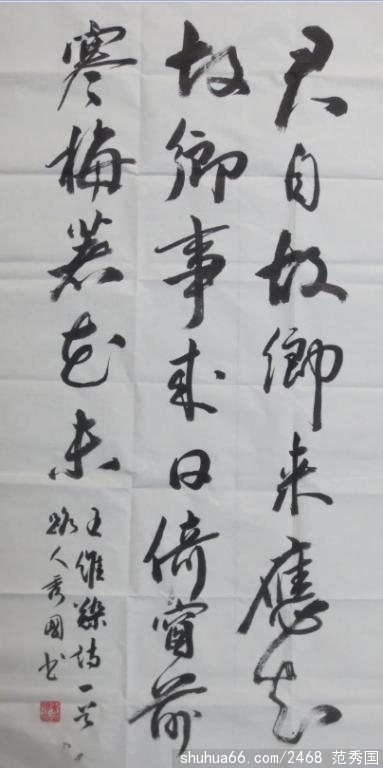 君自故鄉来應知
故鄉事来日倚窗前
寒梅著花未
王維雜詩一首
路人秀國书
shuhua66.com/2468 范秀国